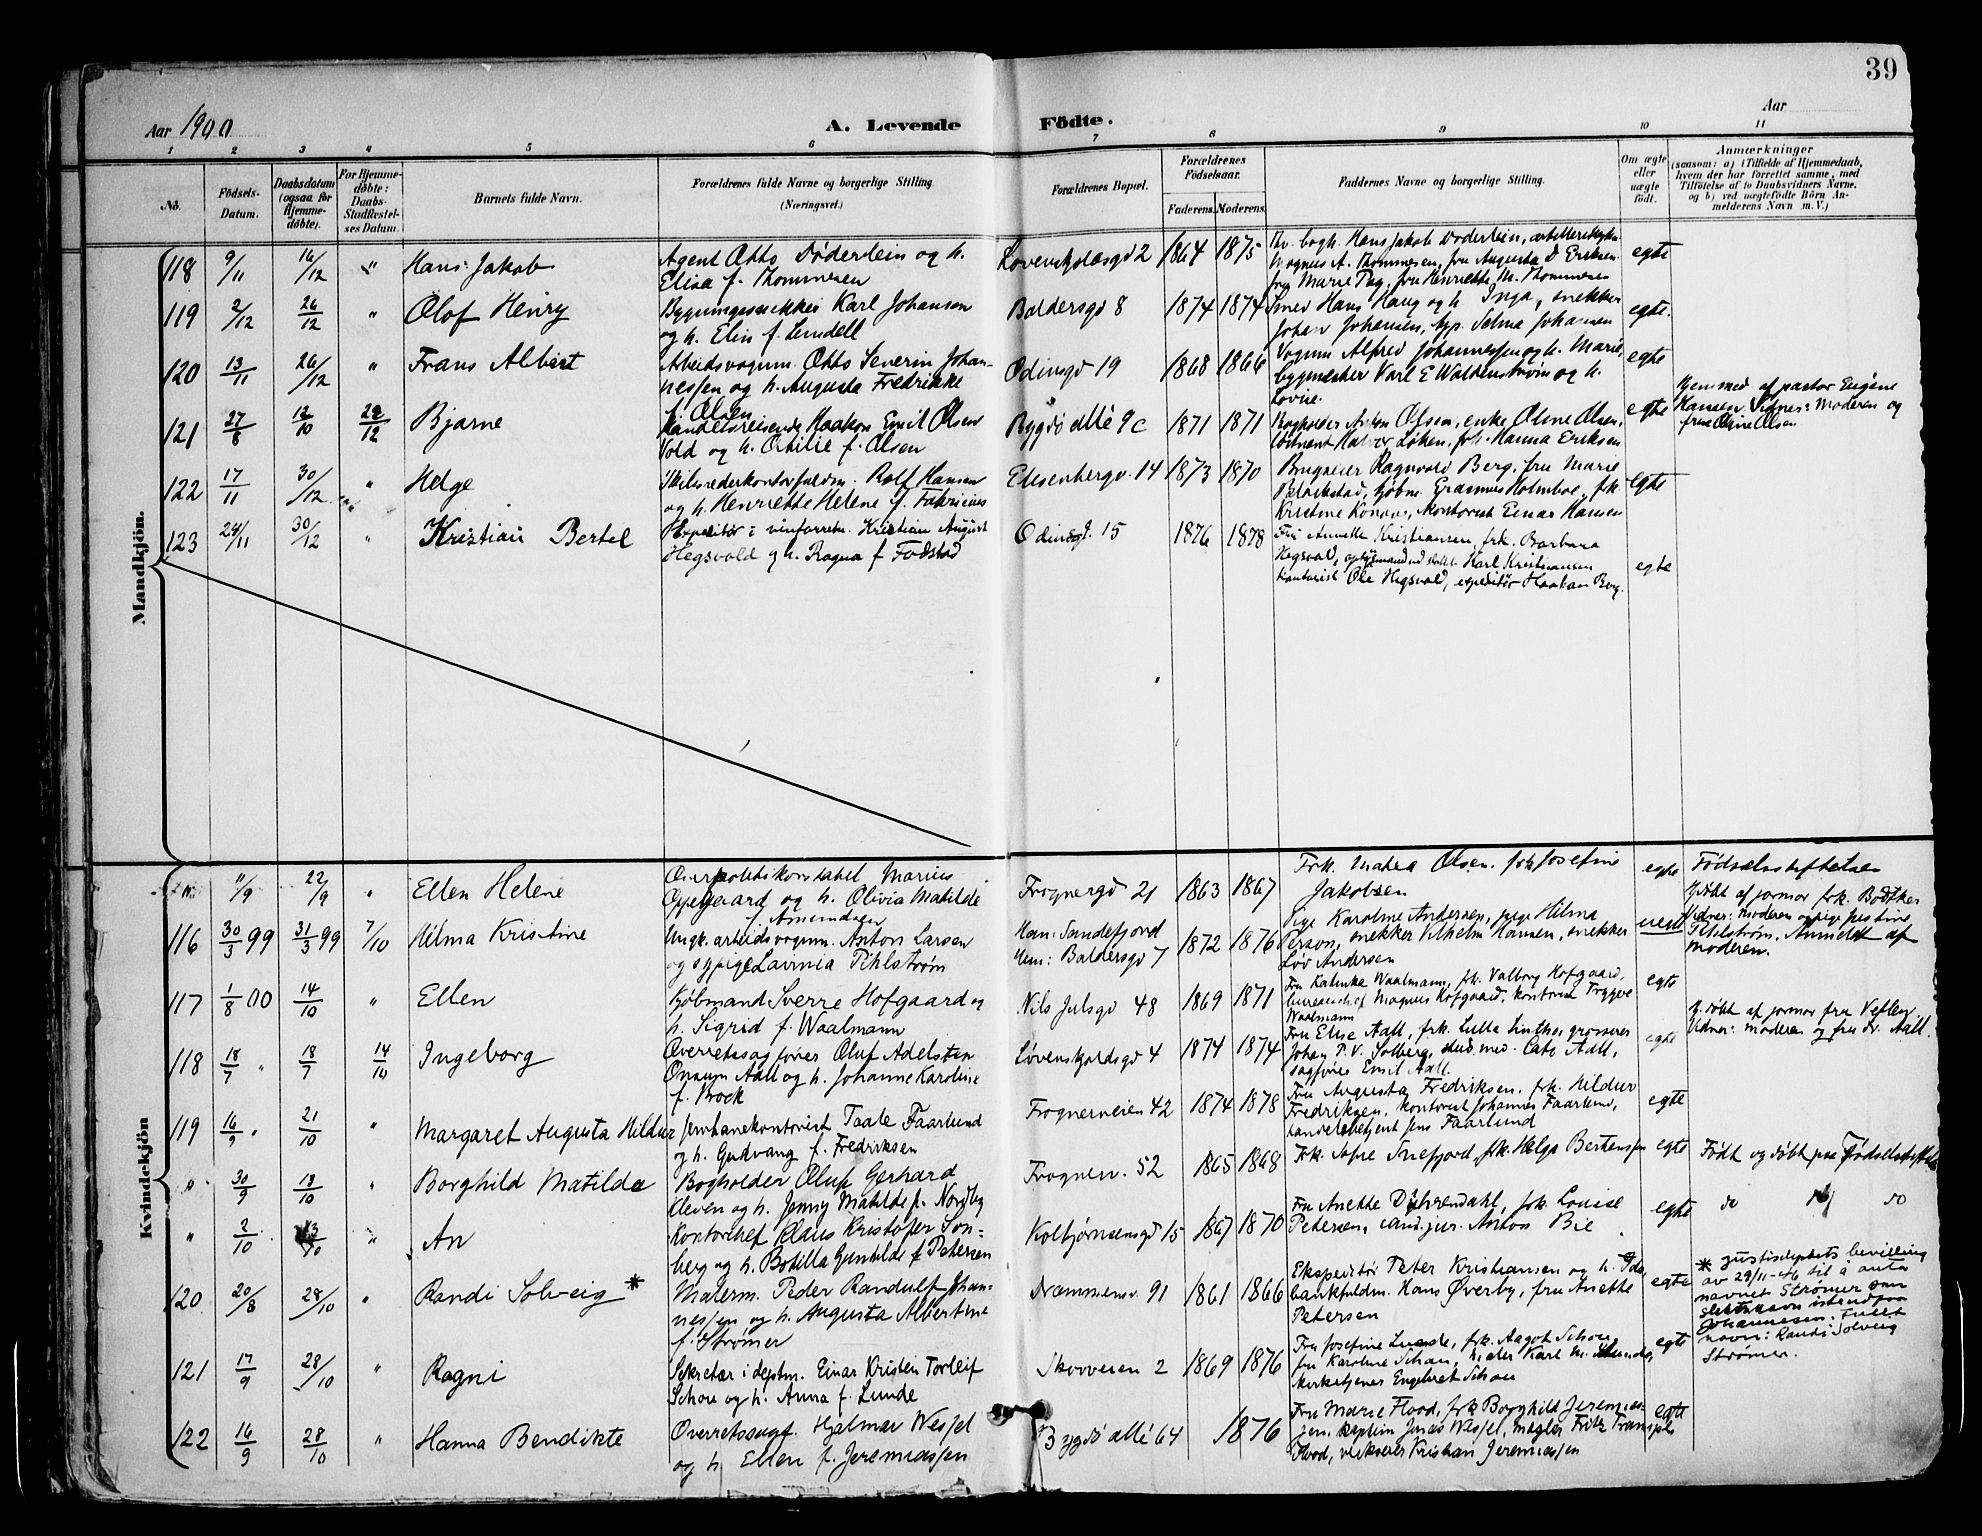 39
Aar 1900
A. Levende Födte.
Aar
1 2 3 4 5 6 7 8 9 10 11
No.
Födsels-Datum.
Daabsdatum (ogsaa for Hjemme-døbte).
For Hjemme-døbte: Daabs-Stadfæstel-ses Datum.
Barnets fulde Navn.
Forældrenes fulde Navne og borgerlige Stilling (Næringsvei.)
Forældrenes Bopæl.
Forældrenes Födselsaar.
Faderens. Moderens.
Faddernes Navne og borgerlige Stilling.
Om ægte eller uægte födt.
Anmærkninger
(saasom: a) i Tilfælde af Hjemmedaab,
hvem der har forrettet samme, med
Tilföielse af to Daabsvidners Navne,
og b) ved uægtefödte Börn An-
melderens Navn m.V.)
Mandkjön.
118 9/11 16/12 " Hans Jakob
Agent Otto Døderlein og h.
Elisa f. Thommesen
Løvenskjoldsgd 2 1864 1875
Hans Jakob Døderlein,
Magnus A. Thommesen, fru Augusta D Eriksen
fru Marie Pay, fru Henriette M. Thommesen
egte
119 2/12 26/12 " Olof Henry
Bygningssnekker Karl Johanson
og h. Elin f. Lindell
Baldersgd 8 1874 1874
Smed Hans Haug og h Inga, snekker
Johan Johansen, Selma Johansen
egte.
120 13/11 26/12 " Frans Albert
Arbeidsvogum. Otto Severin Johan-
nessen og h. Augusta Fredrikke
f. Olsen
Odinsgd 19 1868 1866
Vogum Alfred Johannessen og h. Marie,
bygmester Karl E og h.
Lovise.
egte
121 27/8 12/10 29/12 Bjarne
Handelsreisende Haakon Emil Olsen
Vold og h. Otilie f. Olsen
Bygdø allé 9c 1871 1871
Bogholder Anton Olsen, enke Oline Olsen,
løitnant Halvor Løken, frk. Hanna Eriksen
egte
Hjemmed. af pastor Eugene
Hansen. Vidner: Moderen og
frue Oline Olsen
122 17/11 30/12 " Helge
Skibsrederkontorfuldm. Rolf Hansen
og h. Henriette Helene f. Fabricius
Elisenbergv. 14 1873 1870
Brugseier Ragnvald Berg, fru Marie
Blackstad, kjøbm. Erasmus Holmboe, frk.
Kristine Konow, kontorist Einar Hansen
egte
123 24/11 30/12 " Kristian Bertel
Expeditør i vinforretn. Kristian August
Hegsvold og h. Ragna f. Fodstad
Odinsg. 15 1876 1878
Fru Annette Kristiansen, frk. Barbara
Hegsvold, opsynsmand ved slottet Karl Kristiansen
kontorist Ole Hegsvold, expeditør Haakon Berg.
egte
Kvindekjön
" 11/9 22/9 " Ellen Helene
Overpolitikonstabel Marius
Opegaard og h. Olivia Matilde
f. Amundsen
Frognergd 21 1863 1867
Frk. Matea Olsen. frk Josefine
Jakobsen
egte
Fødselsstiftelsen
116 30/3 99 31/3 99 7/10 Hilma Kristine
Ungk. arbeidsvogum. Anton Larsen
og sypige Lavinia Pihlstrøm
Han: Sandefjord
Hun: Baldersgd 7 1872 1876
Pige Karoline Andersen, pige Hilma
Person, snekker Vilhelm Hansen, snekker
Løv Andersen
uegte
Hj.døbt af jormor frk. Bødtker
Vidner: Moderen og pige Justine
Pihlstrøm. Anmeldt af
moderen.
117 1/8 00 14/10 " Ellen
Kjøbmand Sverre Hofgaard og
h. Sigrid f. Waalmann
Nils Julsgd 48 1869 1871
Fru Katinka Waalmann, frk. Valborg Hofgaard,
bureauchef Magnus Hofgaard, kontorist Trygve
Waalmann
egte
118 18/7 " 18/7 14/10 Ingeborg
Overretssagfører Oluf Adelsten
Onsum Aall og h. Johanne Karoline
f. Bock
Løvenskjoldsgd 4 1874 1874
Fru Elise Aall, frk. Lulla Linthoe, grosserer
Johan P.V. Solberg, stud.med. Cato Aall,
sagfører Emil Aall.
egte
Hj.døbt af jormor fru Vefley.
Vidner: moderen og fru dr. Aall.
119 16/9 " 21/10 " Margaret Augusta Hildur
Jernbanekontorist Taale Faarlund
og h. Gudvang f. Fredriksen
Frognerveien 42 1874 1878
Fru Augusta Fredriksen, frk. Hildur
Fredriksen, kontorist Johannes Faarlund,
handelsbetjent Jens Faarlund
egte
" 30/9 13/10 " Borghild Matilde
Bogholder Oluf Gerhard
Kleven og h. Jenny Matilde f. Nordby
Frognerv. 52 1865 1868
Frk. Sofie Tresfjord, frk. Helga Bertensen
egte
Født og døbt paa Fødselsstiftels
" 2/10 13/10 " An
Kontorchef Klaus Kristofer Søn-
berg og h. Botilla Gunhilde f. Petersen
Kolbjørnsensgd 15 1867 1870
Fru Anette Dührendahl, frk. Louise
Petersen, cand.jur. Anton Bie
egte
do do
120 20/8 28/10 " Randi Solveig *
Malerm. Peder Randulf Johan-
nessen og h. Augusta Albertine
f. Strømer
Drammensv. 91 1861 1866
Ekspeditør Peter Kristiansen og h. Ida,
bankfuldm. Hans Øverby, fru Anette
Petersen
egte
* Justisdeptets bevilling
av 29/11-46 til å anta
navnet Strømer som
slektsnavn istedenfor
Johannesen: Fullt
navn: Randi Solveig
Strømer.
121 17/9 28/10 " Ragni
Sekretær i deptm. Einar Kristen Torleif
Schou og h. Anna f. Lunde
Skovveien 2 1869 1876
Fru Josefine Lunde, frk. Aagot Schou,
fru Karoline Schou, Karl M. Lunde,
kirketjener Engebret Schou
egte
122 16/9 28/10 " Hanna Bendikte
Overretssagf. Hjalmar Wessel
og h. Ellen f. Jeremiassen
Bygdø allé 64 1876
Fru Marie Flood, frk Borghild Jeremias-
sen, kaptein Jonas Wessel, mægler Fritz
Flood, verkseier Kristian Jeremiassen
egte